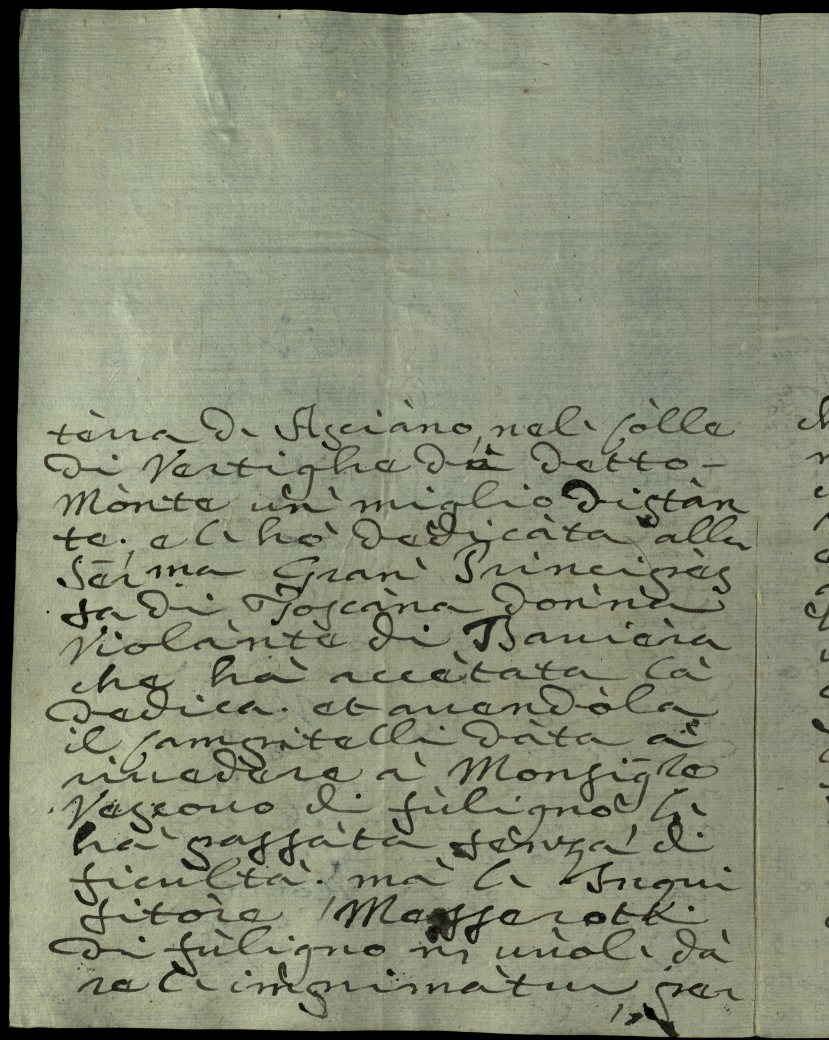 tèrra di Asciàno, nel còlle
di Vertighe dà detto-
Mònte ùn' miglio distàn
te. e li hò dèdicàta alla
Ser:ma Gran' Principès
sa di Toscàna donna
Violante di Bauièra
che hà accètata là
dedica. et auendòla
il Campitelli dàta à
riuedere à Monsig:re
Vescouo di fùligno lì
hà passàta sènza di
ficultà. mà li Inqui
sitòre Messerotti
di fùligno nò uùole dà
re li imprimàtur per